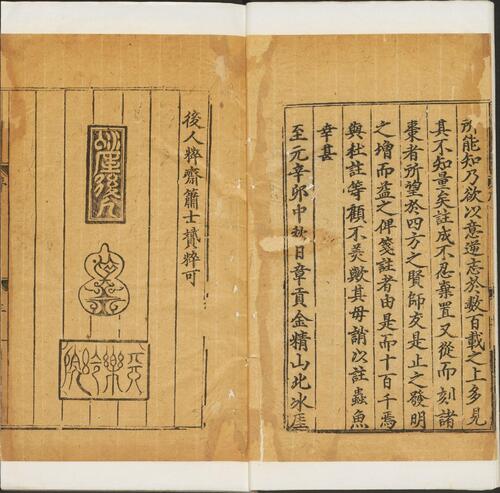 所能知乃欲以意逆志於數百載之上多見
其不知量矣註成不忍棄置又從而刻諸
棗者所望於四方之賢師友是正之發明
之增而益之俾箋註者由是而十百千焉
與杜註等顧不美歟其毋誚以註蟲魚
幸甚
至元辛卯中秋日章貢金精山北冰厓
後人粹齋蕭士贇粹可
冰厓後人